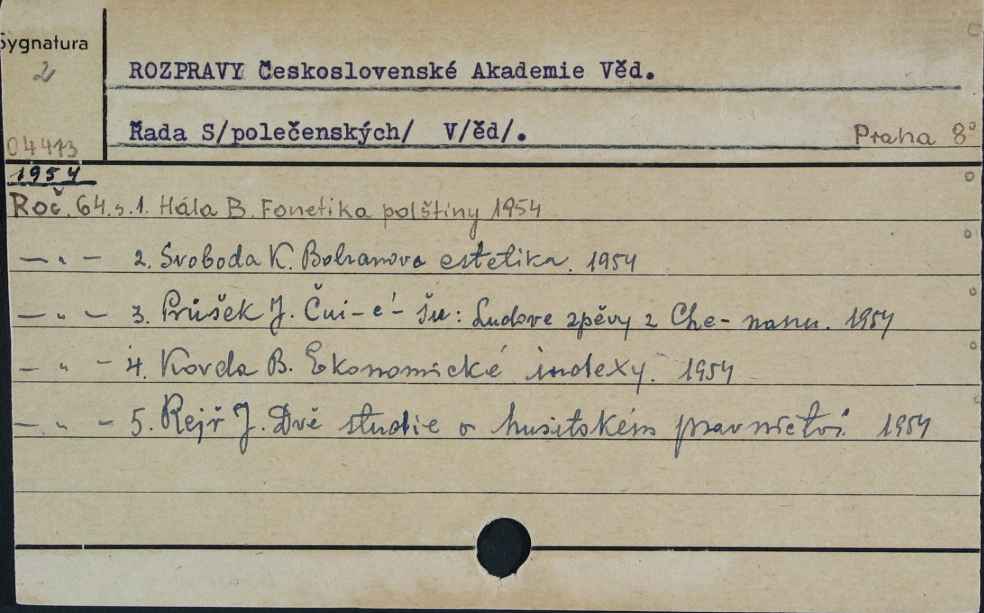 Sygnatura
2
ROZPRAVY Československé Akademie Věd.
04413
Řada S/polečenských/ V/ěd/.
Praha 8°
1954
Roč. 64.s.1. Hála B. Fonetika polštiny 1954
— „ — 2. Svoboda K. Bolzanova estetika. 1954
— „ — 3. Průšek J. Čui-é-šu: Ludove zpěvy z Che-nanu. 1954
— „ — 4. Korda B. Ekonomické indexy. 1954
— „ — 5. Rejř J. Dvě studie o husitském pravnictvi 1954